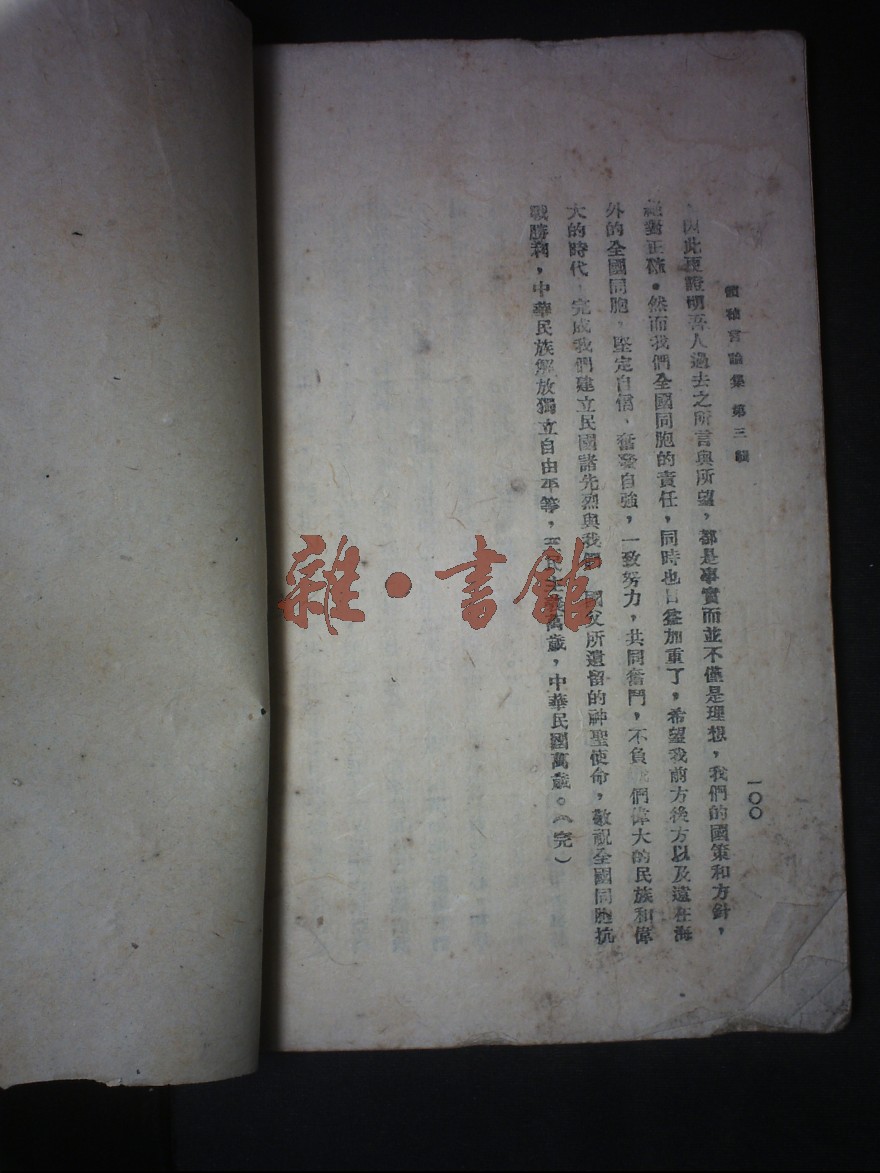 領袖言論集 第三輯
一〇〇
因此更證明吾人過去之所言與所望，都是事實而並不僅是理想，我們的國策和方針，
絕對正確。然而我們全國同胞的責任，同時也日益加重了，希望我前方後方以及遠在海
外的全國同胞，堅定自信、奮發自強，一致努力，共同奮鬥，不負我們偉大的民族和偉
大的時代，完成我們建立民國諸先烈與我們 國父所遺留的神聖使命，敬祝全國同胞抗
戰勝利，中華民族解放獨立自由平等，三民主義萬歲，中華民國萬歲。（完）
雜·書館